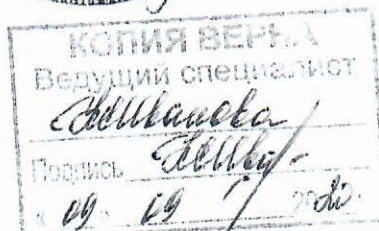 КОПИЯ ВЕРНА
Ведущий специалист
Подпись
« 09 » 09 2020.